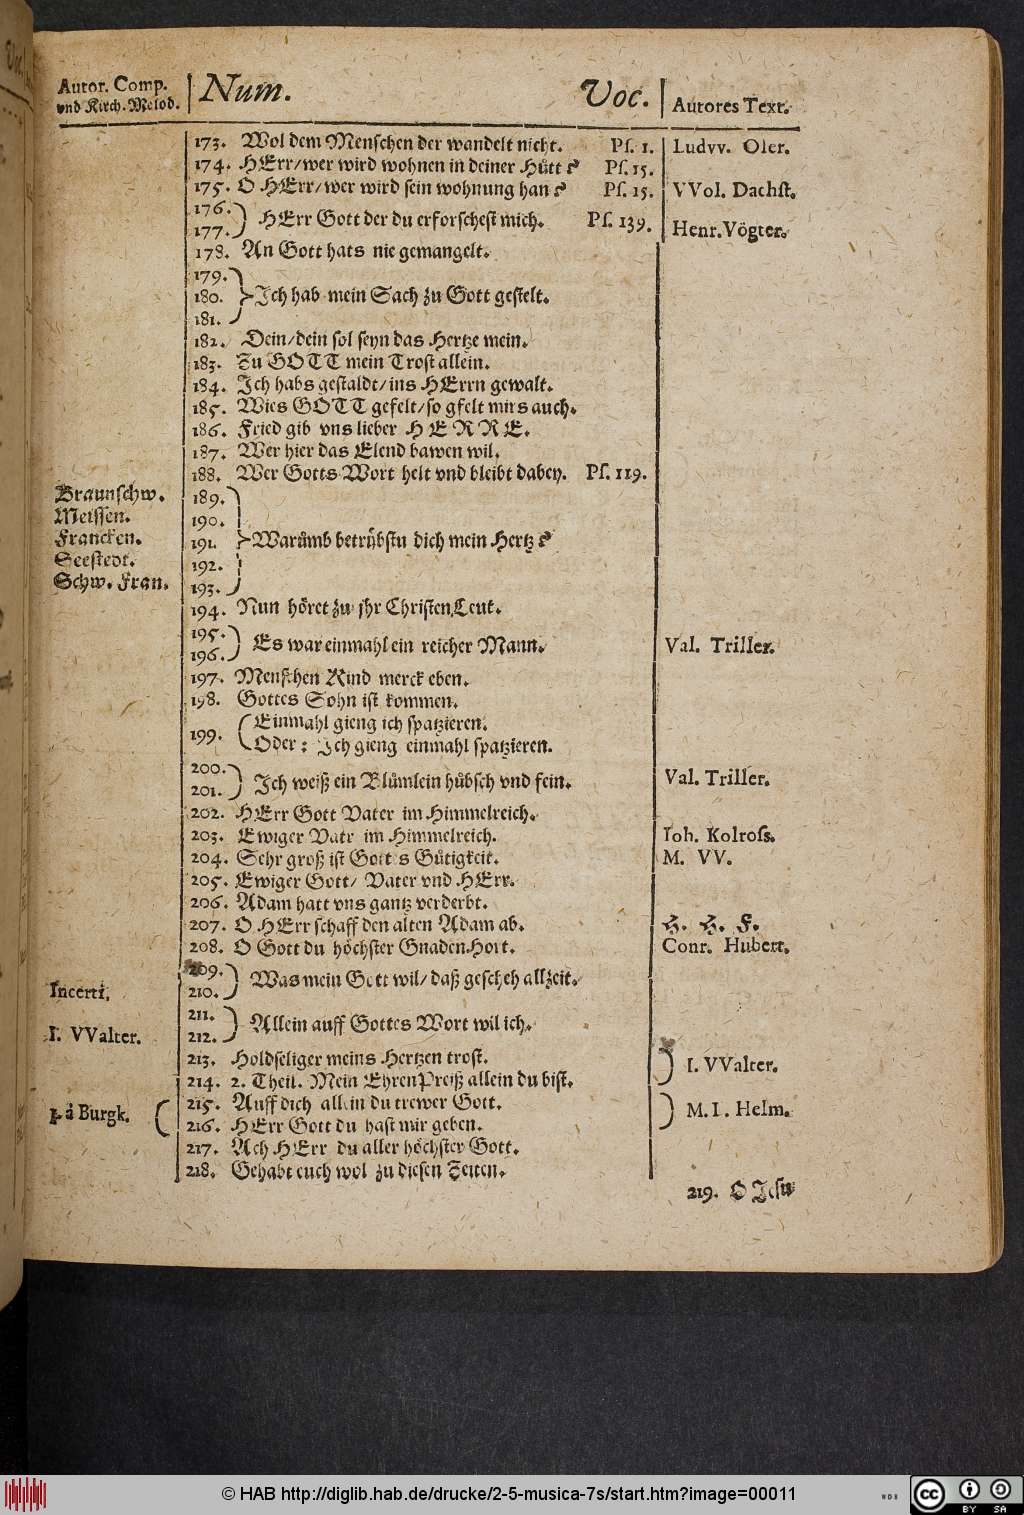 Autor. Comp. Num. Voc. Autores Text.
vnd Kirch. Melod.
173. Wol dem Menschen der wandelt nicht. Ps. 1. Ludvv. Oler.
174. HErr/wer wird wohnen in deiner Hütt? Ps. 15.
175. O HErr/wer wird sein wohnung han? Ps. 15. VVol. Dachst.
176.
177. HErr Gott der du erforschest mich. Ps. 139. Henr. Vögter.
178. An Gott hats nie gemangelt.
179.
180. Ich hab mein Sach zu Gott gestelt.
181.
182. Dein/dein sol seyn das Hertze mein.
183. Zu GOTT mein Trost allein.
184. Ich habs gestaldt/ins HErrn gewalt.
185. Wies GOTT gefelt/so gfelt mirs auch.
186. Fried gib vns lieber HERRE.
187. Wer hier das Elend bawen wil.
188. Wer Gotts Wort helt vnd bleibt dabey. Ps. 119.
Braunschw. 189.
Meissen. 190.
Francken. 191. Warümb betrübstu dich mein Hertz?
Seestedt. 192.
Schw. Fran. 193.
194. Nun höret zu jhr Christen Leut.
195.
196. Es war einmahl ein reicher Mann. Val. Triller.
197. Menschen Kind merck eben.
198. Gottes Sohn ist kommen.
199. Einmahl gieng ich spatzieren.
Oder: Ich gieng einmahl spatzieren.
200.
201. Ich weiß ein Blümlein hübsch vnd fein. Val. Triller.
202. HErr Gott Vater im Himmelreich.
203. Ewiger Vatr im Himmelreich. Ioh. Kolross.
204. Sehr groß ist Gottes Gütigkeit. M. VV.
205. Ewiger Gott/ Vater vnd HErr.
206. Adam hatt vns gantz verderbt.
207. O HErr schaff den alten Adam ab. H. H. F.
208. O Gott du höchster Gnaden Hort. Conr. Hubert.
209.
Incerti. 210. Was mein Gott wil/ daß gescheh allzeit.
211.
I. VValter. 212. Allein auff Gottes Wort wil ich.
213. Holdseliger meins Hertzen trost. I. VValter.
214. 2. Theil. Mein EhrenPreiß allein du bist.
à Burgk. 215. Auff dich allein du trewer Gott. M. I. Helm.
216. HErr Gott du hast mir geben.
217. Ach HErr du aller höchster Gott.
218. Gehabt euch wol zu diesen Zeiten.
219. O Jesu
© HAB http://diglib.hab.de/drucke/2-5-musica-7s/start.htm?image=00011
WDB
cc BY SA